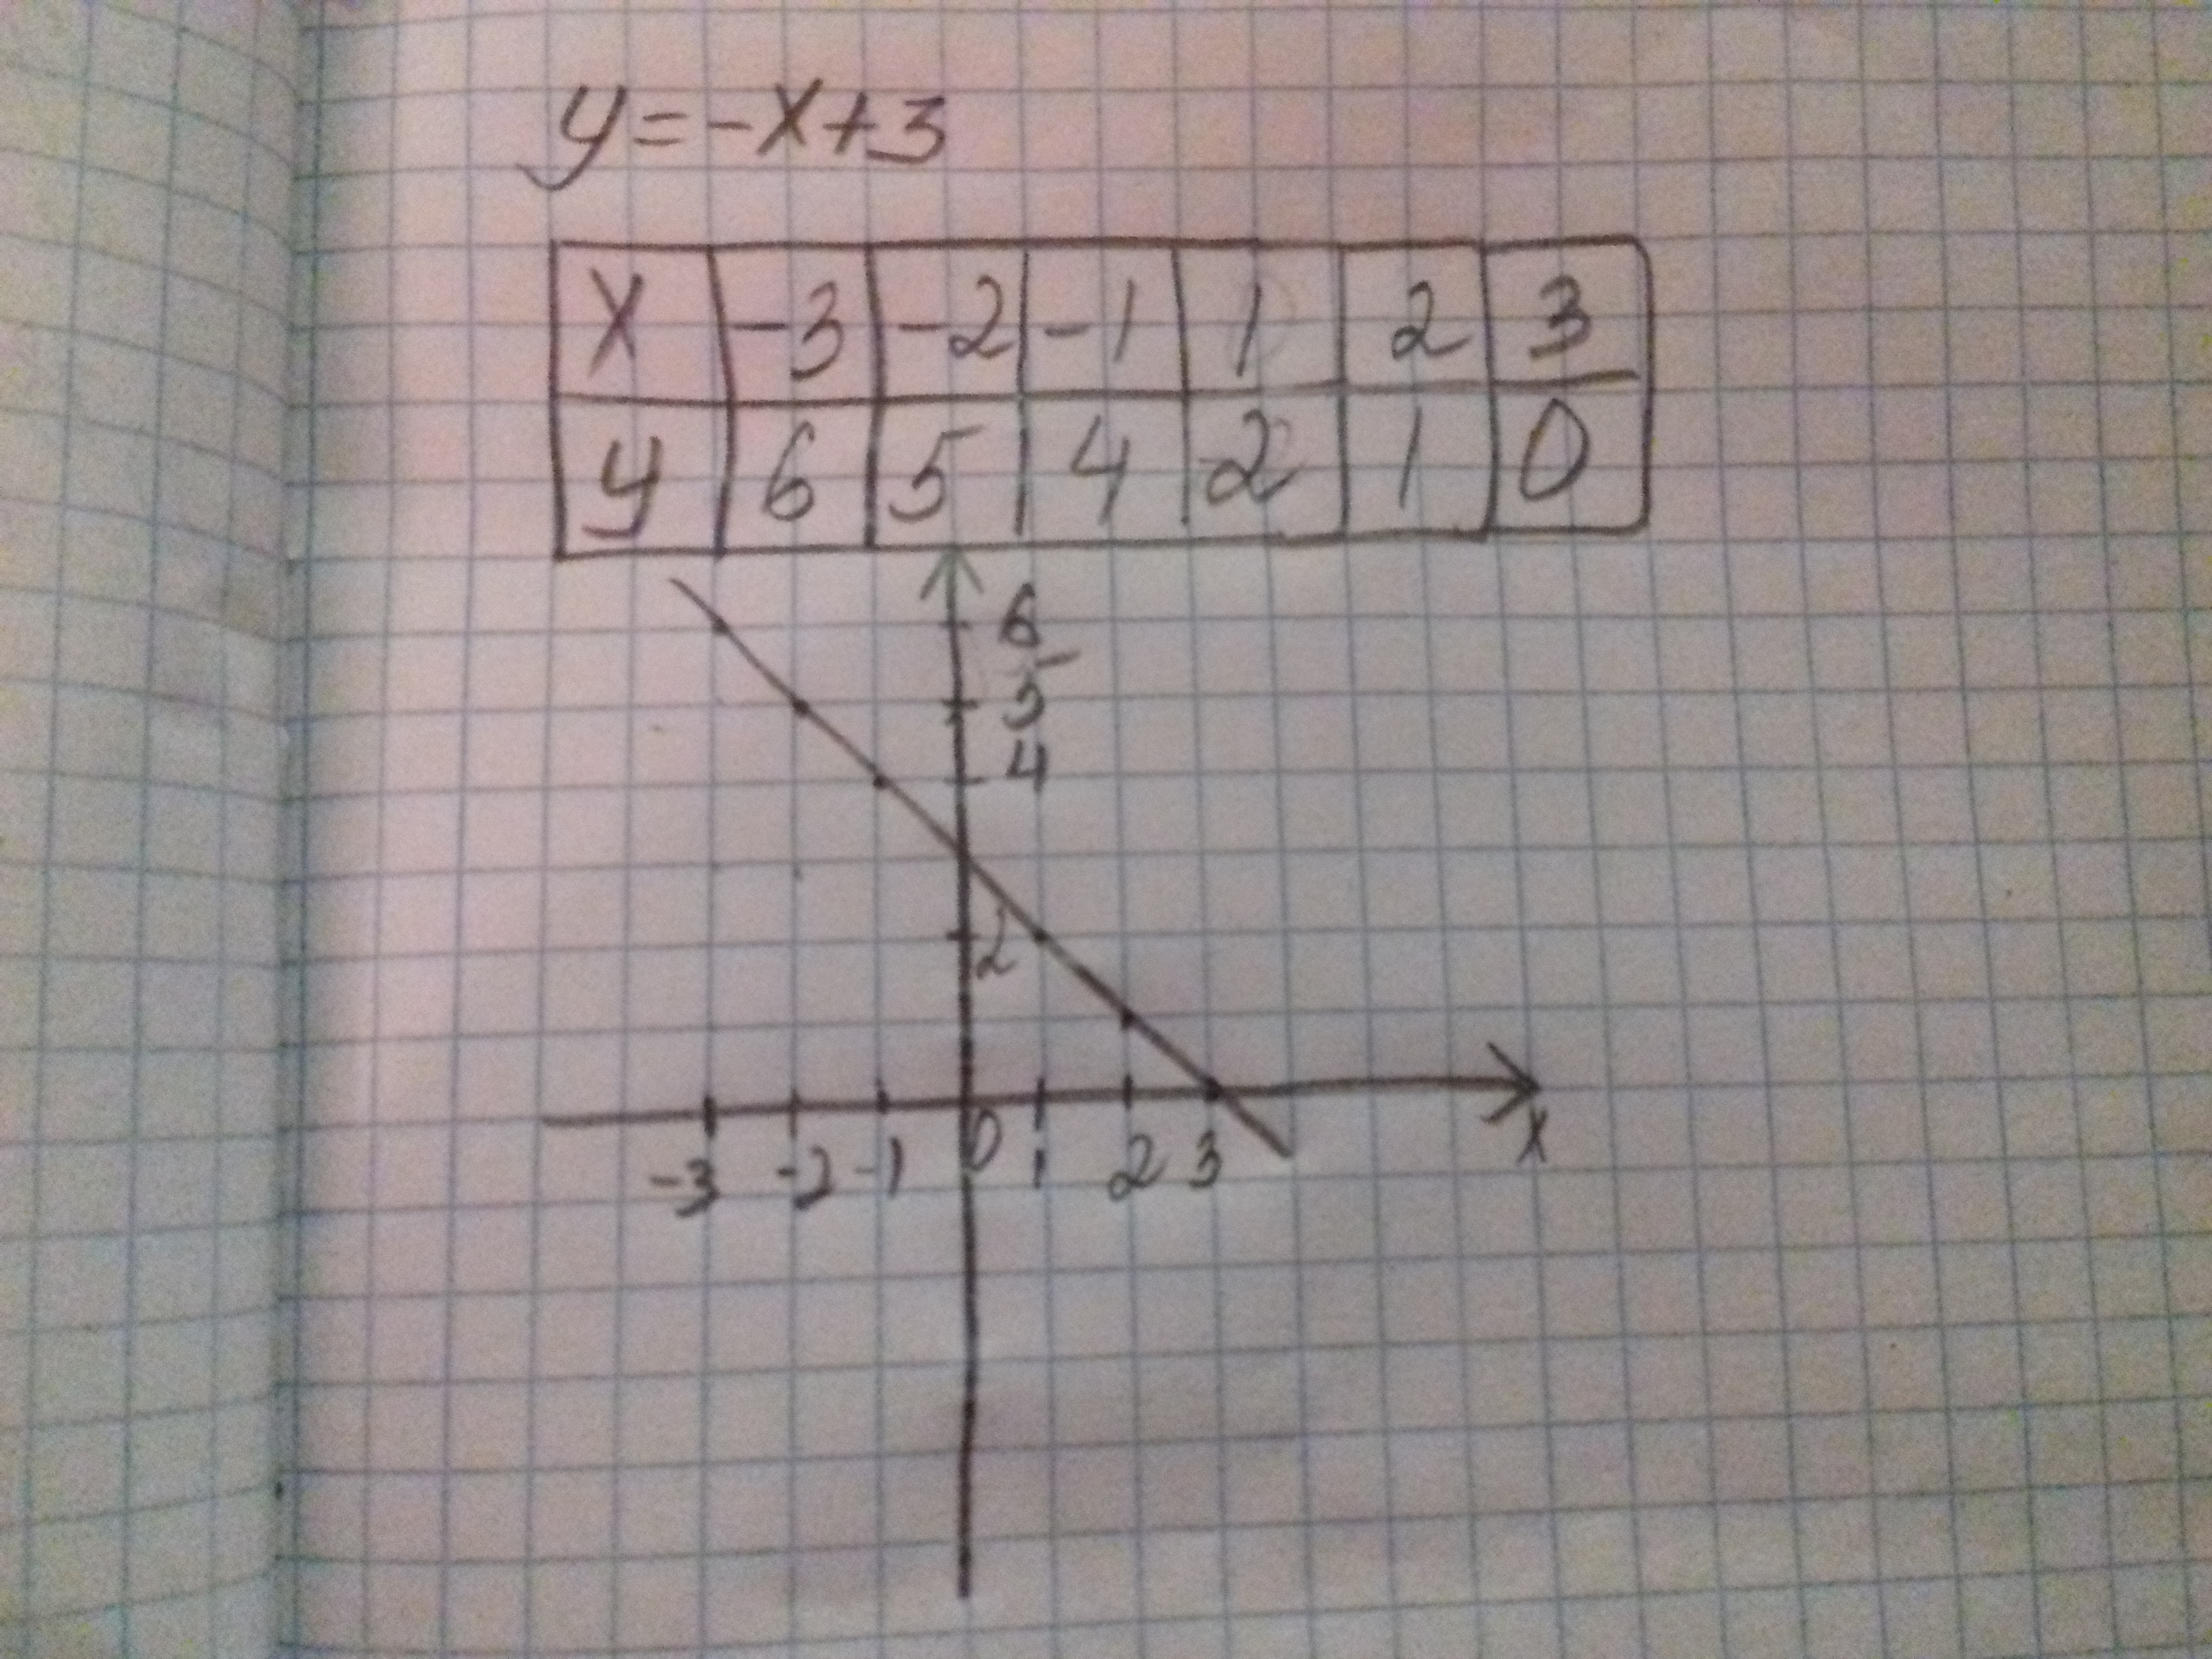 y=-x+3
x -3 -2 -1 1 2 3
y 6 5 4 2 1 0
6
5
4
2
-3 -2 -1 0 1 2 3 x